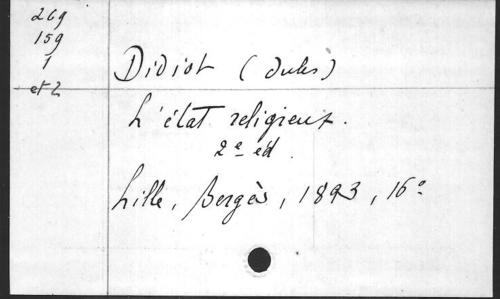 269
159
1
et 2
Didiot (Jules)
L'état religieux.
2e éd.
Lille, Bergès, 1893, 16°